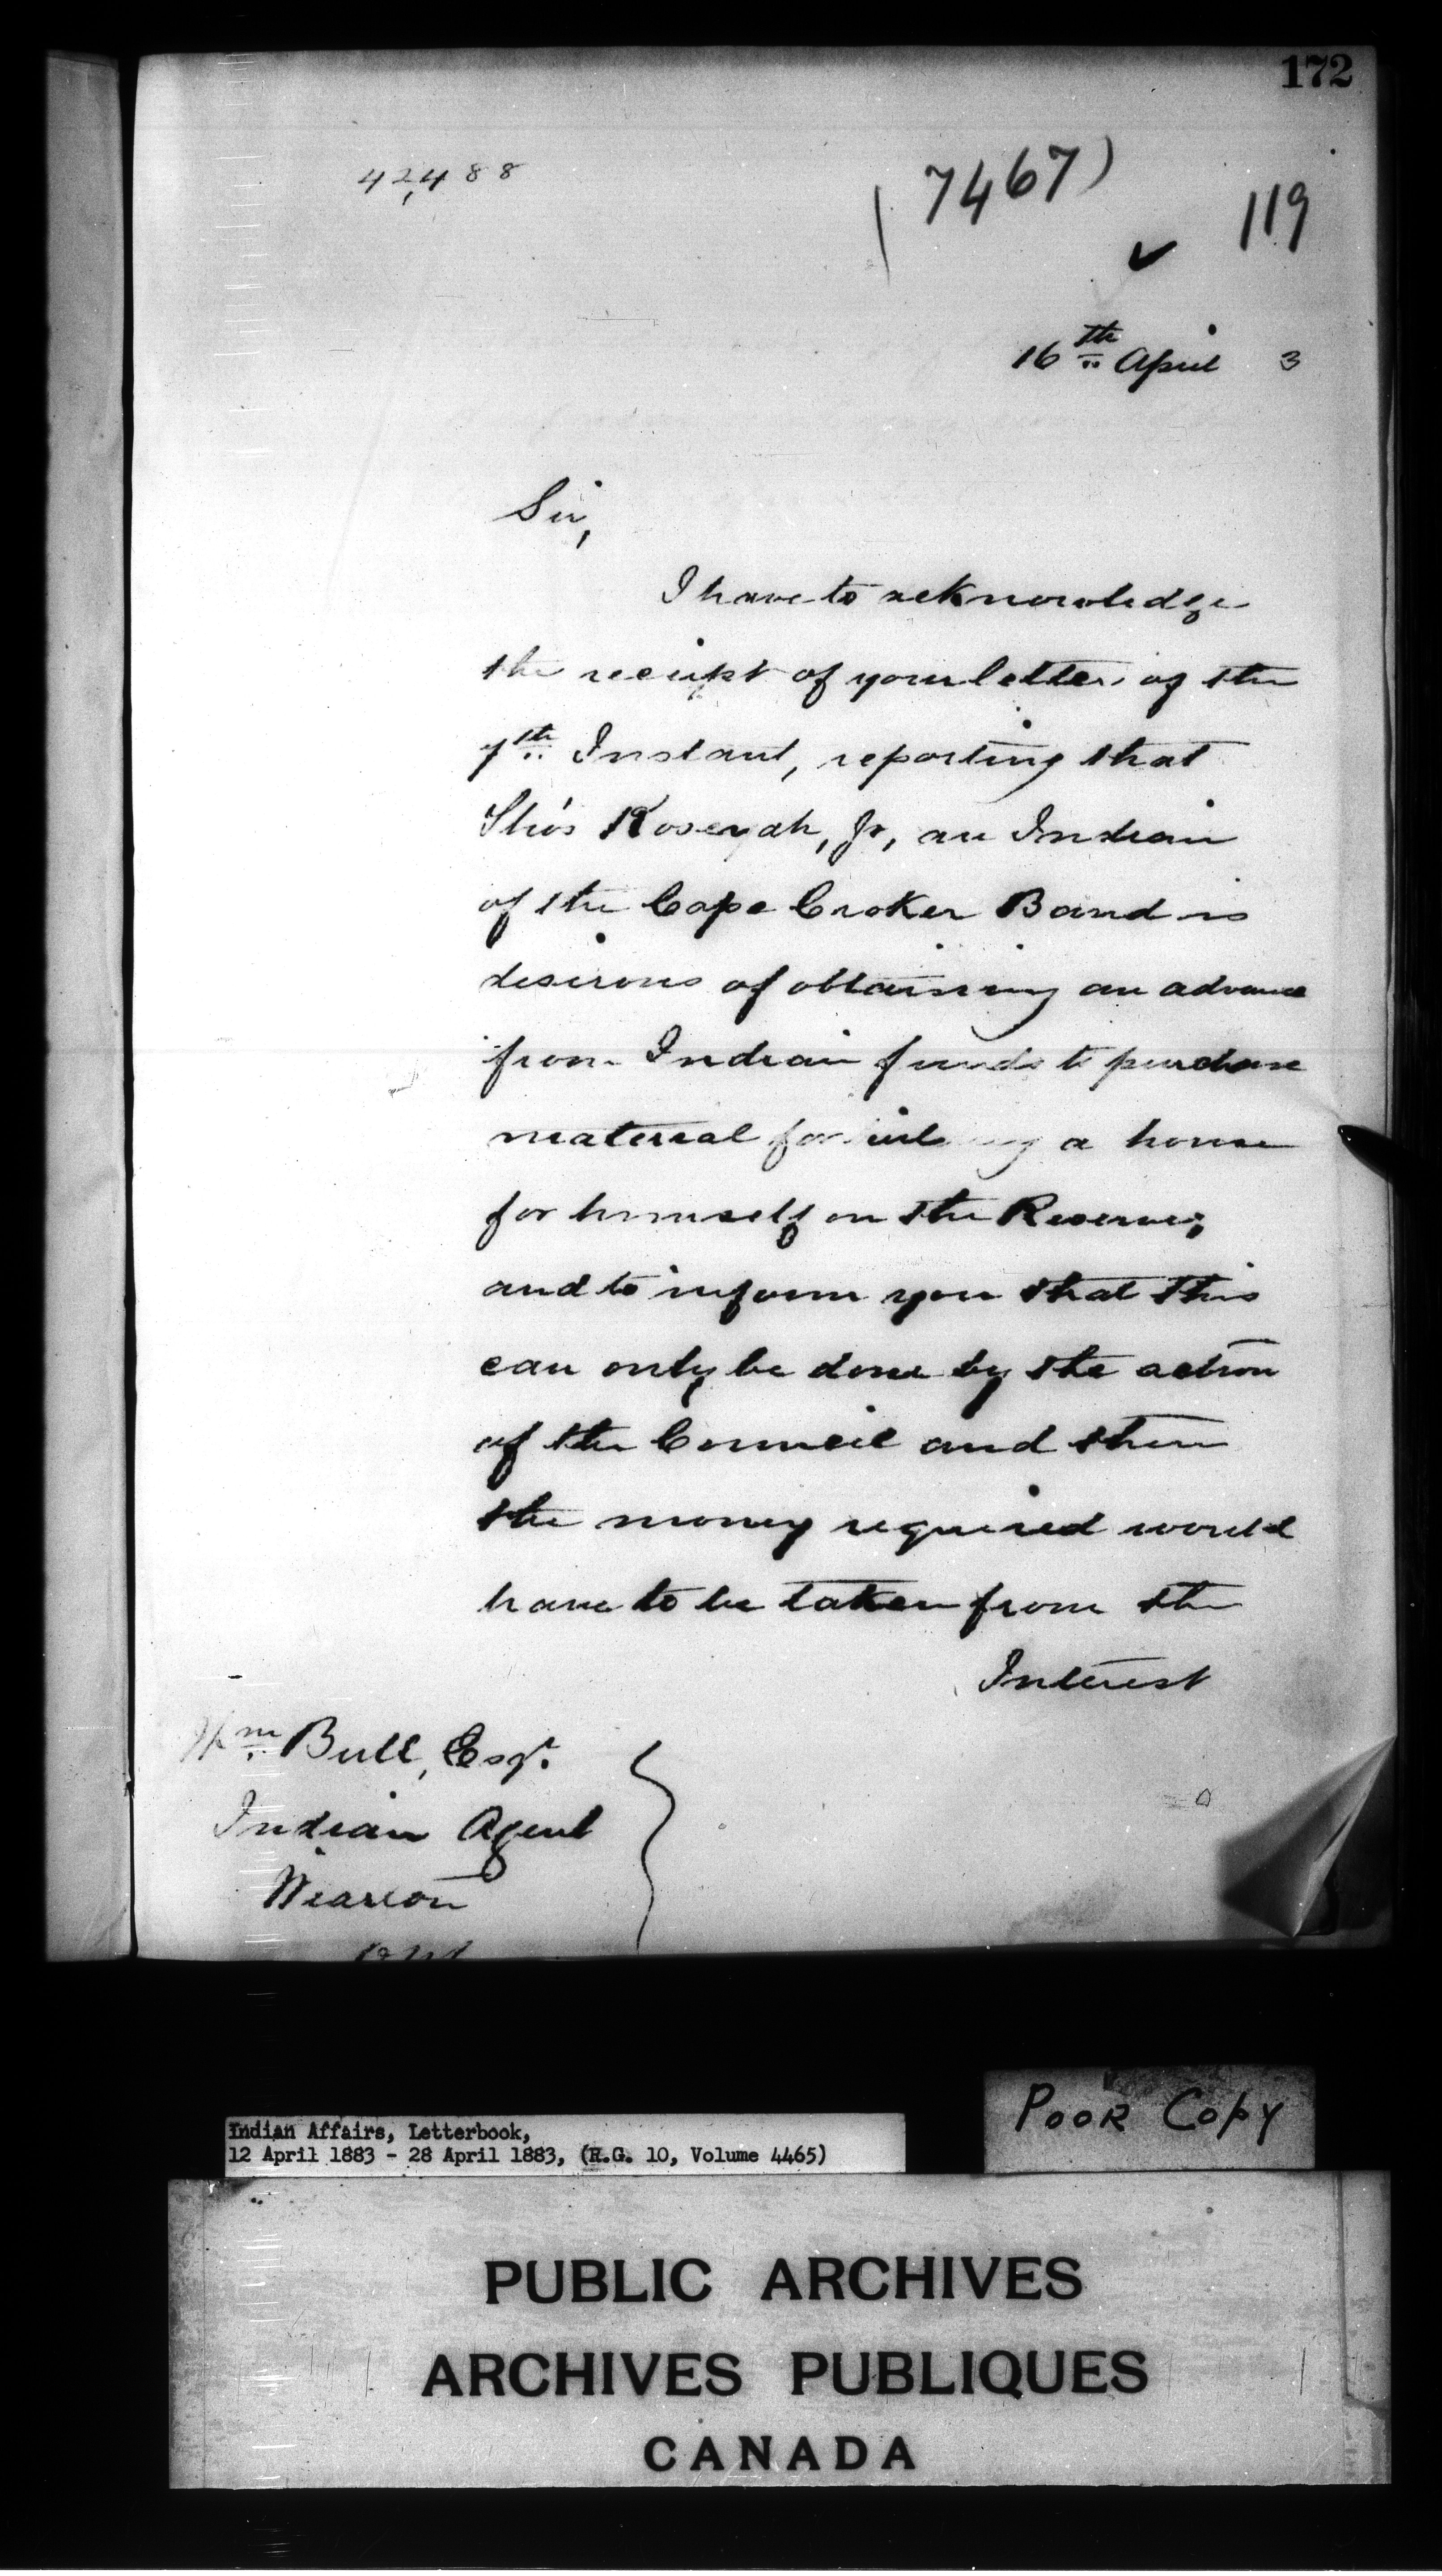 172
42,488
(7467)
119
16th April 3
Sir,
I have to acknowledge
the receipt of your letter of the
7th Instant, reporting that
Tho's Koseyah, Jr, an Indian
of the Cape Croker Band is
desirous of obtaining an advance
from Indian funds to purchase
material for a house
for himself on the Reserve;
and to inform you that this
can only be done by the action
of the Council and then
the money required would
have to be taken from the
Interest
Wm Bull, Esqr.
Indian Agent
Wiarton
Ont
Poor Copy
Indian Affairs, Letterbook,
12 April 1883 - 28 April 1883, (R.G. 10, Volume 4465)
PUBLIC ARCHIVES
ARCHIVES PUBLIQUES
CANADA